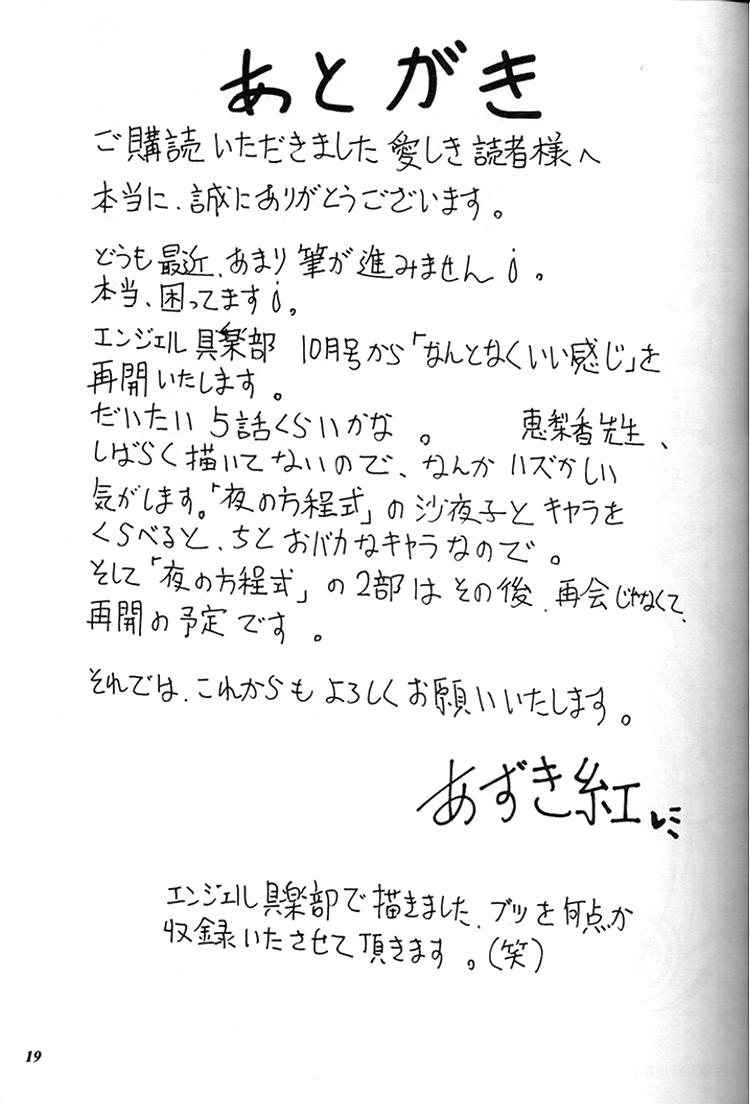 あとがき
ご購読いただきました愛しき読者様へ
本当に、誠にありがとうございます。
どうも最近、あまり筆が進みません¡。
本当、困ってます¡。
エンジェル倶楽部 10月号から「なんとなくいい感じ」を
再開いたします。
だいたい5話くらいかな。 恵梨香先生、
しばらく描いてないので、なんかハズかしい
気がします。「夜の方程式」の沙夜子とキャラを
くらべると、ちとおバカなキャラなので。
そして「夜の方程式」の2部はその後、再会じゃなくて、
再開の予定です。
それでは、これからもよろしくお願いいたします。
あずき紅
エンジェル倶楽部で描きました、ブツを何点か
収録いたさせて頂きます。(笑)
19